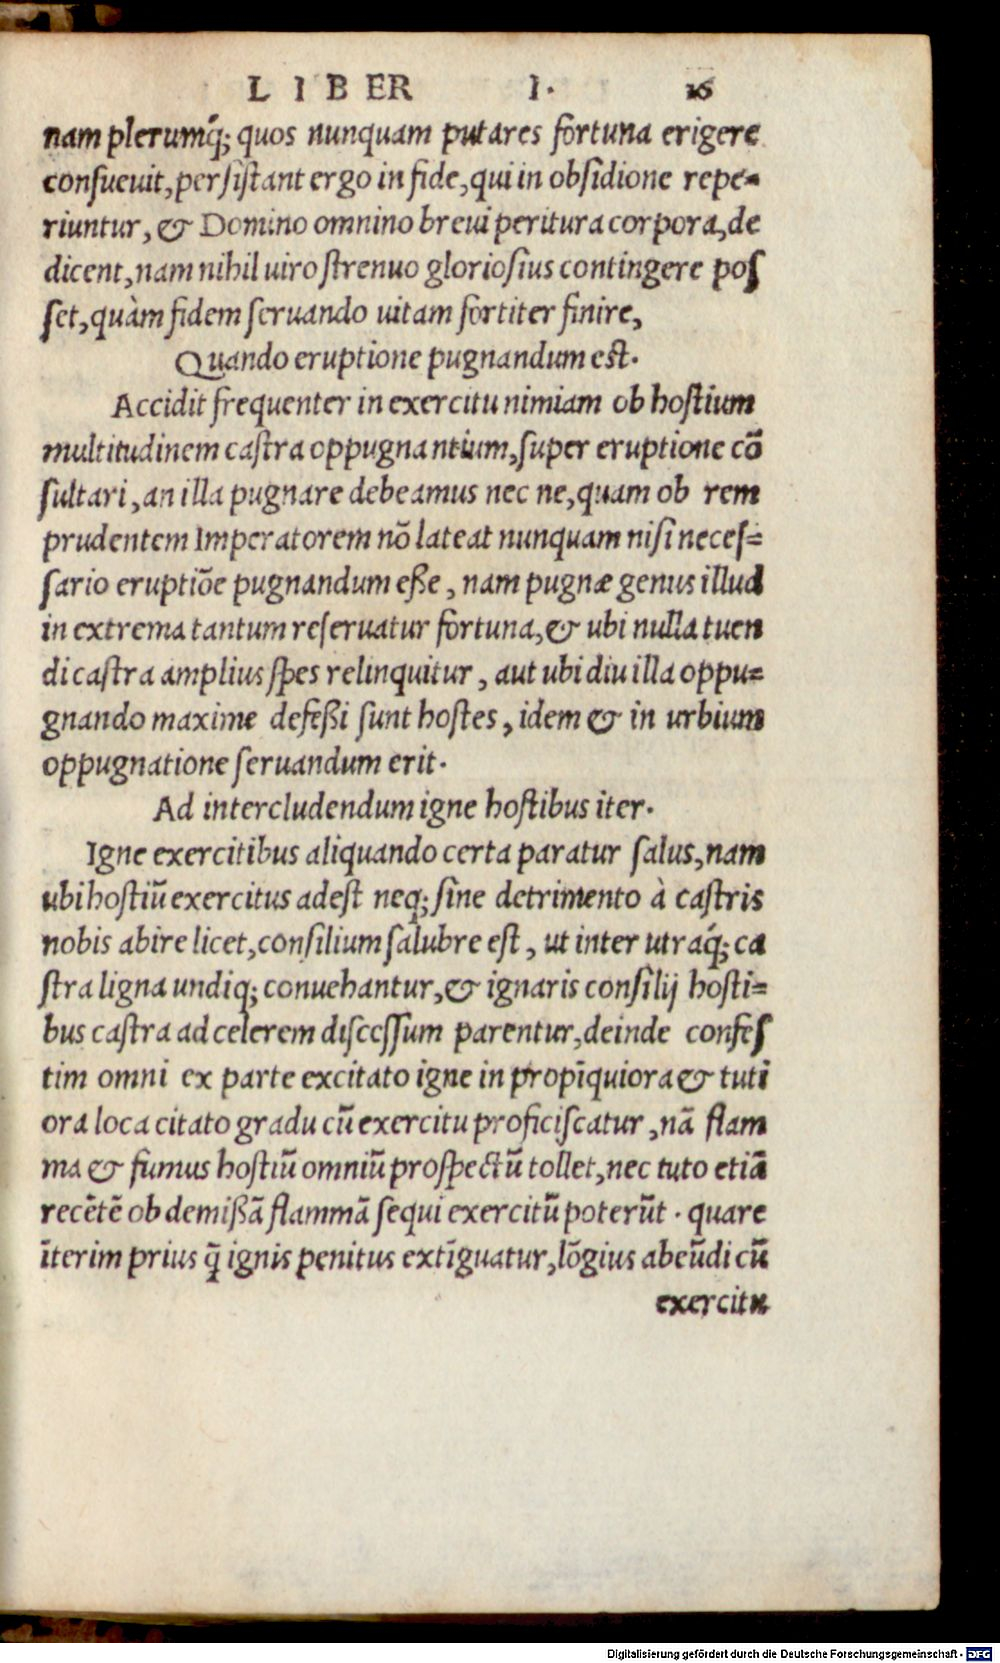 LIBER I. 16
nam plerumq́; quos nunquam putares fortuna erigere
consueuit, persistant ergo in fide, qui in obsidione repe-
riuntur, & Domino omnino breui peritura corpora, de
dicent, nam nihil uiro strenuo gloriosius contingere pos
set, quàm fidem seruando uitam fortiter finire,
Quando eruptione pugnandum est.
Accidit frequenter in exercitu nimiam ob hostium
multitudinem castra oppugnantium, super eruptione cõ
sultari, an illa pugnare debeamus nec ne, quam ob rem
prudentem Imperatorem nõ lateat nunquam nisi neces-
sario eruptiõe pugnandum eße, nam pugnæ genus illud
in extrema tantum reseruatur fortuna, & ubi nulla tuen
di castra amplius spes relinquitur, aut ubi diu illa oppu-
gnando maxime defeßi sunt hostes, idem & in urbium
oppugnatione seruandum erit.
Ad intercludendum igne hostibus iter.
Igne exercitibus aliquando certa paratur salus, nam
ubi hostiũ exercitus adest neq; sine detrimento à castris
nobis abire licet, consilium salubre est, ut inter utraq́; ca
stra ligna undiq; conuehantur, & ignaris consilij hosti-
bus castra ad celerem discessum parentur, deinde confes
tim omni ex parte excitato igne in propĩquiora & tuti
ora loca citato gradu cũ exercitu proficiscatur, nã flam
ma & fumus hostiũ omniũ prospectũ tollet, nec tuto etiã
recẽtẽ ob demißã flammã sequi exercitũ poterũt. quare
ĩterim prius q̃ ignis penitus extĩguatur, lõgius abeũdi cũ
exercitu
Digitalisierung gefördert durch die Deutsche Forschungsgemeinschaft - DFG